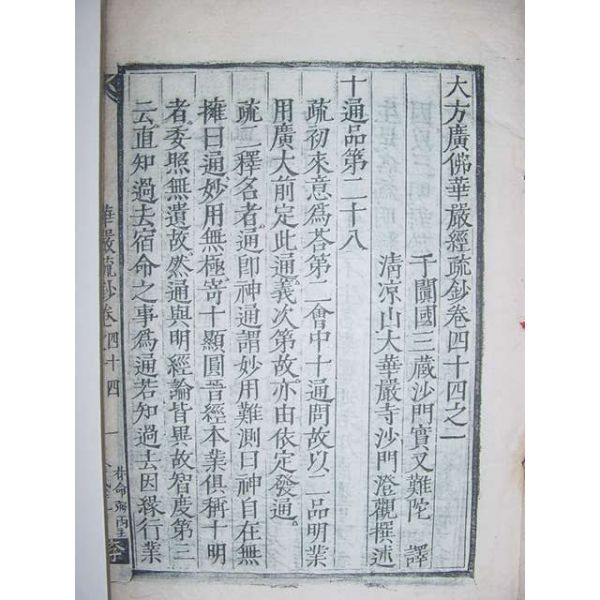 大方廣佛華嚴經疏鈔卷四十四之一
于闐國三藏沙門實叉難陀　譯
清凉山大華嚴寺沙門澄觀撰述
十通品第二十八
疏初來意爲荅第二會中十通問故以二品明業
用廣大前定此通義次第故亦由依定發通
疏二釋名者通卽神通謂妙用難測曰神自在無
擁曰通妙用無極寄十顯圓晉經本業俱稱十明
者委照無遺故然通與明經論皆異故智度第三
云直知過去宿命之事爲通若知過去因緣行業
華嚴疏鈔卷四十四